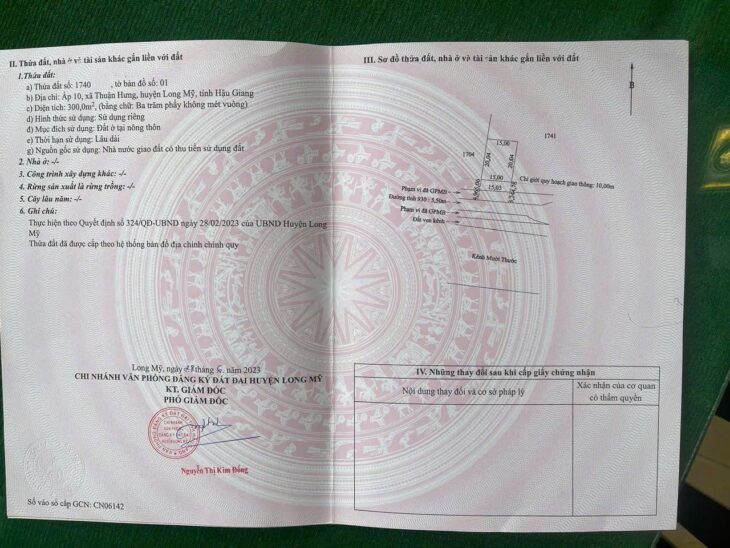 II. Thửa đất, nhà ở và tài sản khác gắn liền với đất
1. Thửa đất:
a) Thửa đất số: 1740 , tờ bản đồ số: 01
b) Địa chỉ: Ấp 10, xã Thuận Hưng, huyện Long Mỹ, tỉnh Hậu Giang
c) Diện tích: 300,0m², (bằng chữ: Ba trăm phẩy không mét vuông)
d) Hình thức sử dụng: Sử dụng riêng
đ) Mục đích sử dụng: Đất ở tại nông thôn
e) Thời hạn sử dụng: Lâu dài
g) Nguồn gốc sử dụng: Nhà nước giao đất có thu tiền sử dụng đất
2. Nhà ở: -/-
3. Công trình xây dựng khác: -/-
4. Rừng sản xuất là rừng trồng: -/-
5. Cây lâu năm: -/-
6. Ghi chú:
Thực hiện theo Quyết định số 324/QĐ-UBND ngày 28/02/2023 của UBND Huyện Long
Mỹ
Thửa đất đã được cấp theo hệ thống bản đồ địa chính chính quy
Long Mỹ, ngày tháng năm 2023
CHI NHÁNH VĂN PHÒNG ĐĂNG KÝ ĐẤT ĐAI HUYỆN LONG MỸ
KT. GIÁM ĐỐC
PHÓ GIÁM ĐỐC
Nguyễn Thị Kim Đồng
Số vào sổ cấp GCN: CN06142
III. Sơ đồ thửa đất, nhà ở và tài sản khác gắn liền với đất
B
1741
15,00
1704
20,04
20,04
15,00
Chỉ giới quy hoạch giao thông: 10,00m
15,03
Phạm vi đã GPMB
Đường tỉnh 930 : 5,50m
Phạm vi đã GPMB
Đất ven kênh
Kênh Mười Thước
IV. Những thay đổi sau khi cấp giấy chứng nhận
Nội dung thay đổi và cơ sở pháp lý
Xác nhận của cơ quan
có thẩm quyền